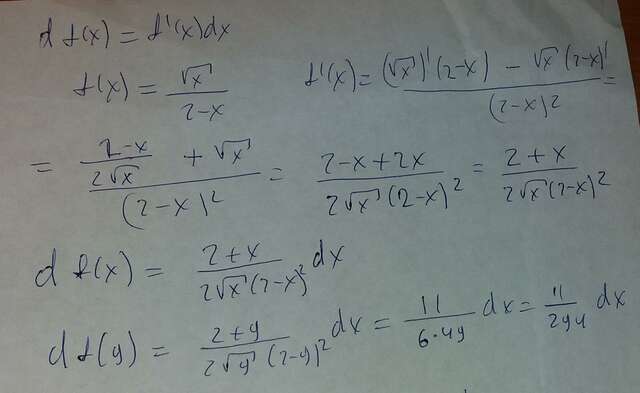 d f(x) = f'(x)dx
f(x) = √x / (2-x)    f'(x) = ((√x)'(2-x) - √x(2-x)') / (2-x)² =
= ((2-x)/(2√x) + √x) / (2-x)² = (2-x+2x) / (2√x(2-x)²) = (2+x) / (2√x(2-x)²)
d f(x) = (2+x) / (2√x(2-x)²) dx
d f(9) = (2+9) / (2√9(2-9)²) dx = 11 / (6·49) dx = 11/294 dx